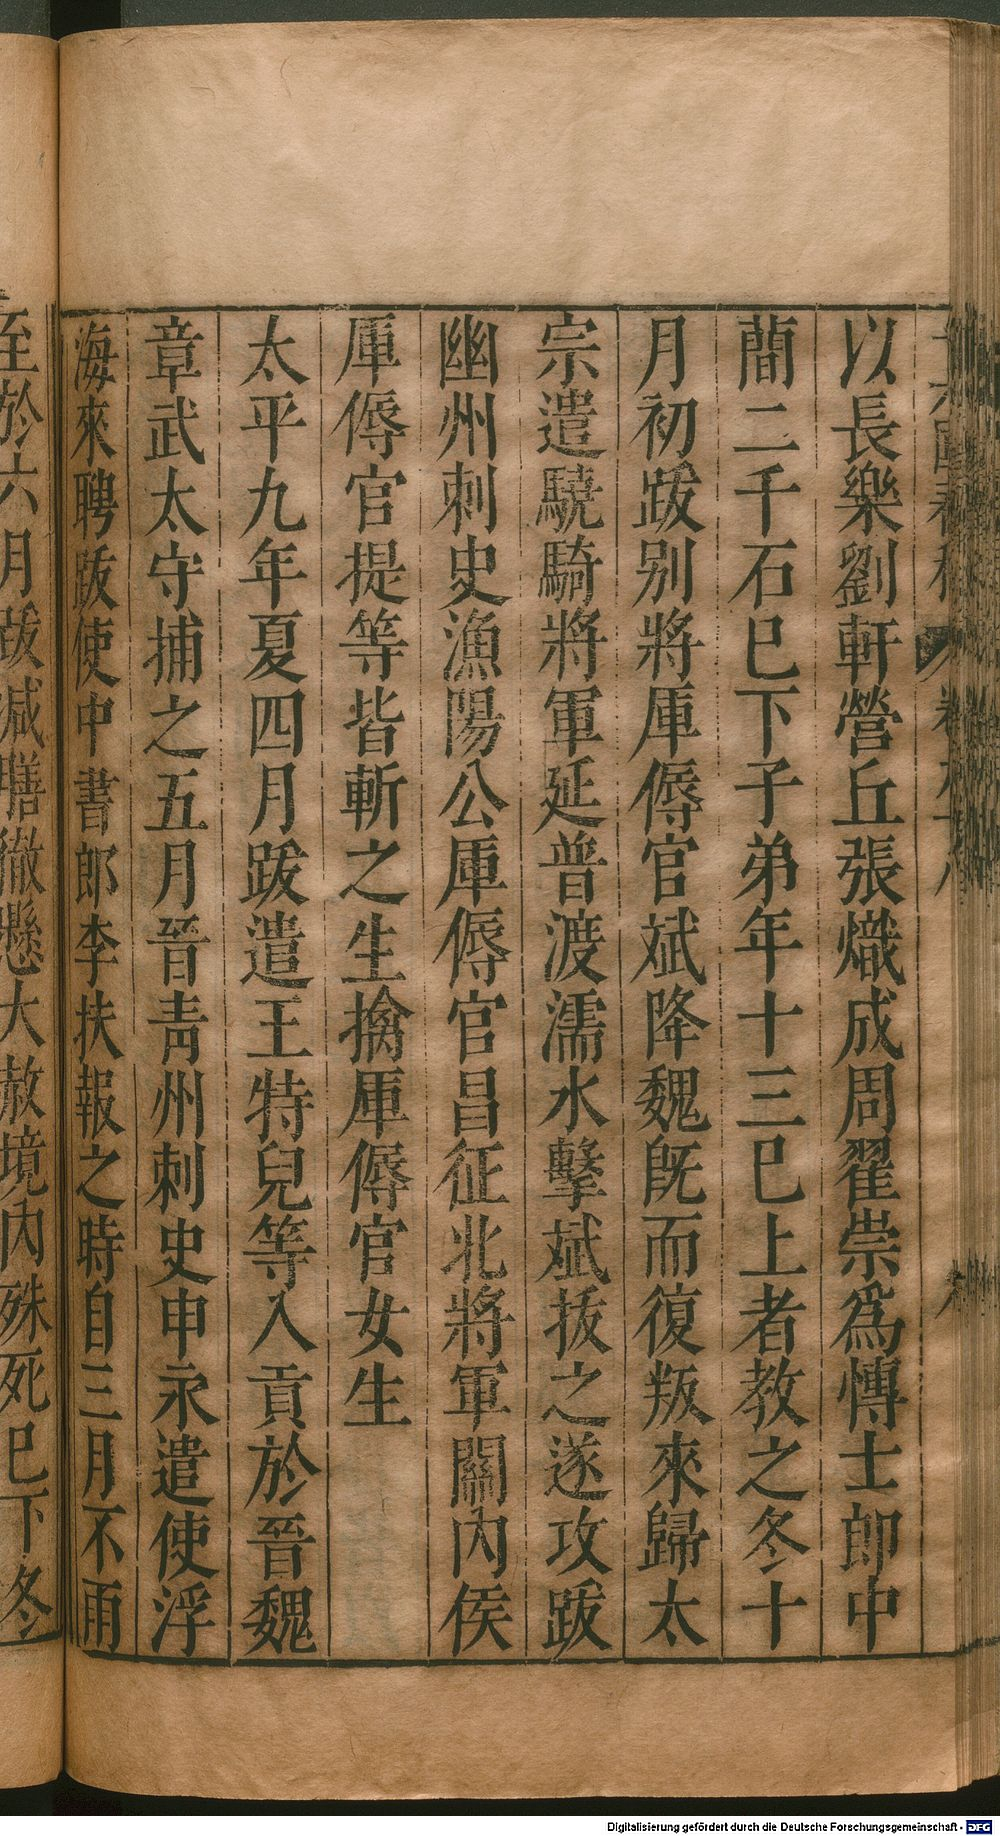 以長樂劉軒營丘張熾成周翟崇爲愽士郎中
蕳二千石巳下子弟年十三巳上者教之冬十
月初跋别將厙傉官斌降魏旣而復叛來歸太
宗遣驍騎將軍延普渡濡水擊斌拔之遂攻跋
幽州刺史漁陽公厙傉官昌征北將軍關內侯
厙傉官提等皆斬之生擒厙傉官女生
太平九年夏四月跋遣王特兒等入貢於晉魏
章武太守捕之五月晉青州刺史申永遣使浮
海來聘跋使中書郎李扶報之時自三月不雨
至於六月跋減膳徹懸大赦境內殊死巳下冬
Digitalisierung gefördert durch die Deutsche Forschungsgemeinschaft - DFG